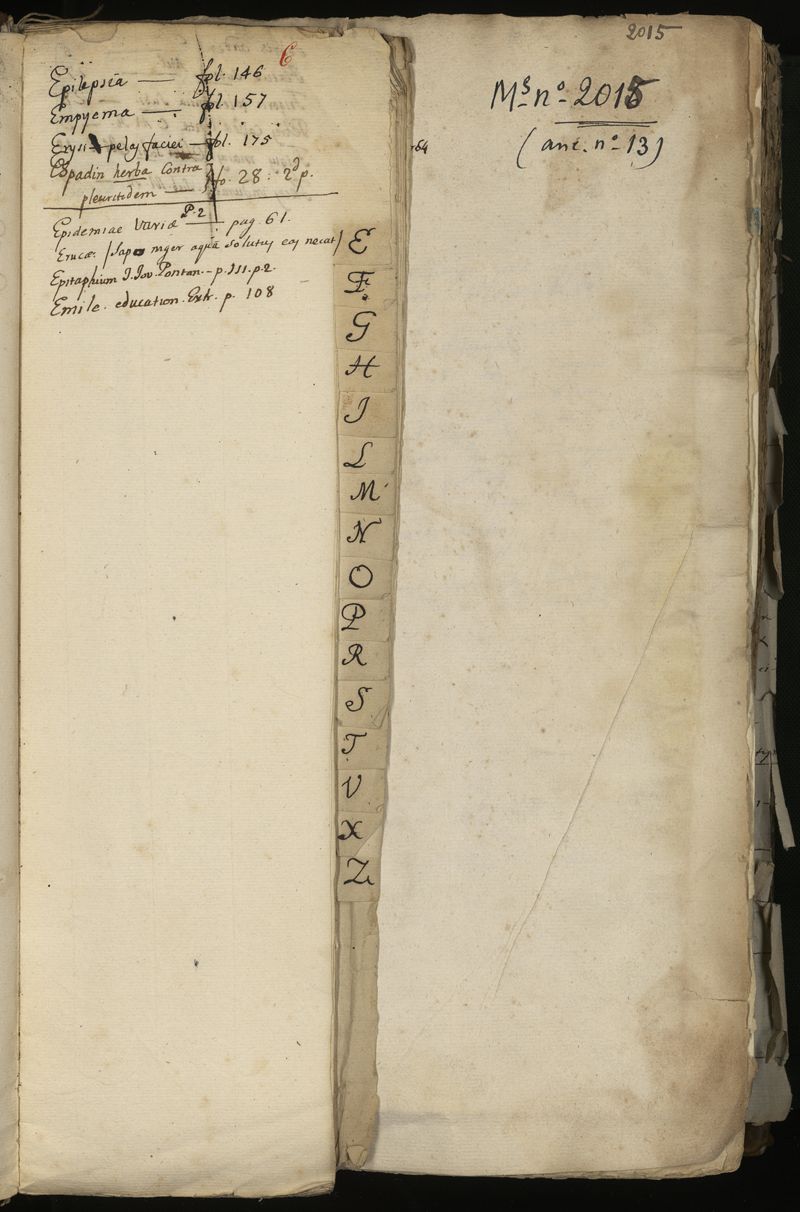 E
Epilepsia — fol. 146
Empyema — fol 157
Erysipelas faciei — fol. 175
Espadin herba contra
pleuritidem — fo. 28: 2d p.
Epidemiae variæ P. 2 pag. 61.
Erucæ. (Sapo niger aquâ solutus eas necat)
Epitaphium J. Jov. Pontan. - p. 111. p. 2.
Emile. education. Extr. p. 108
E
F
G
H
I
L
M
N
O
P
R
S
T
V
X
Z
64
2015
Ms. no. 2015
(anc. no. 13)